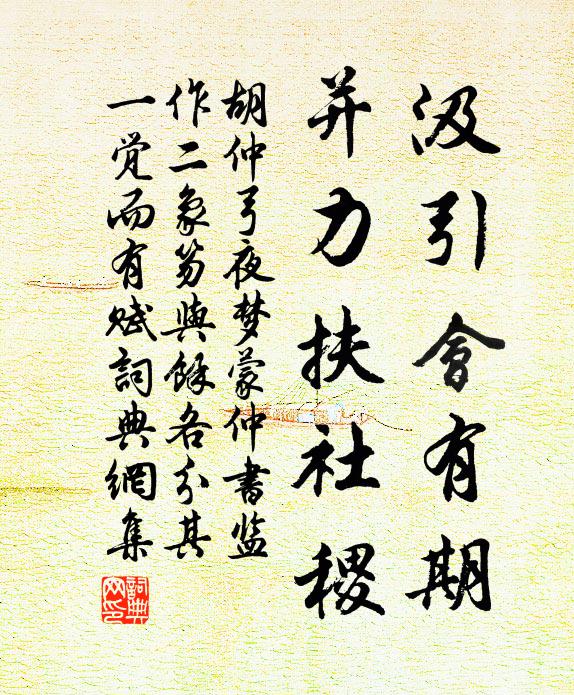 汲引會有期
并力扶社稷
胡仲弓夜梦蒙仲書监
作二象笏與餘各分其
一觉而有赋詞典網集
詞典网印